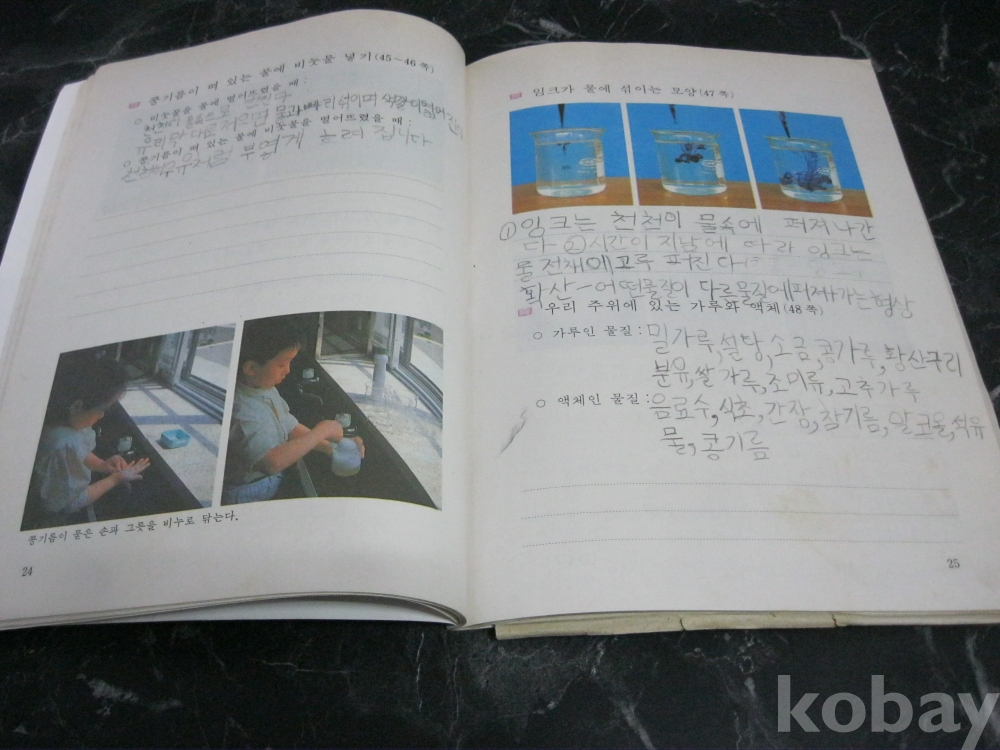 콩기름이 떠 있는 물에 비눗물 넣기(45~46쪽)
비눗물을 물에 떨어뜨렸을 때:
콩기름이 떠 있는 물에 비눗물을 떨어뜨렸을 때:
부옇게 흐려 집니다
콩기름이 묻은 손과 그릇을 비누로 닦는다.
24
잉크가 물에 섞이는 모양(47쪽)
①잉크는 천천히 물속에 퍼져 나간
다 ②시간이 지남에 따라 잉크는
물 전체에 고루 퍼진다
확산-어떤물질이 다른물질에퍼져가는현상
우리 주위에 있는 가루와 액체(48쪽)
가루인 물질: 밀가루,설탕,소금,콩가루,황산구리
분유,쌀가루,조미류,고추가루
액체인 물질: 음료수,식초,간장,참기름,알코올,석유
물,콩기름
25
kobay